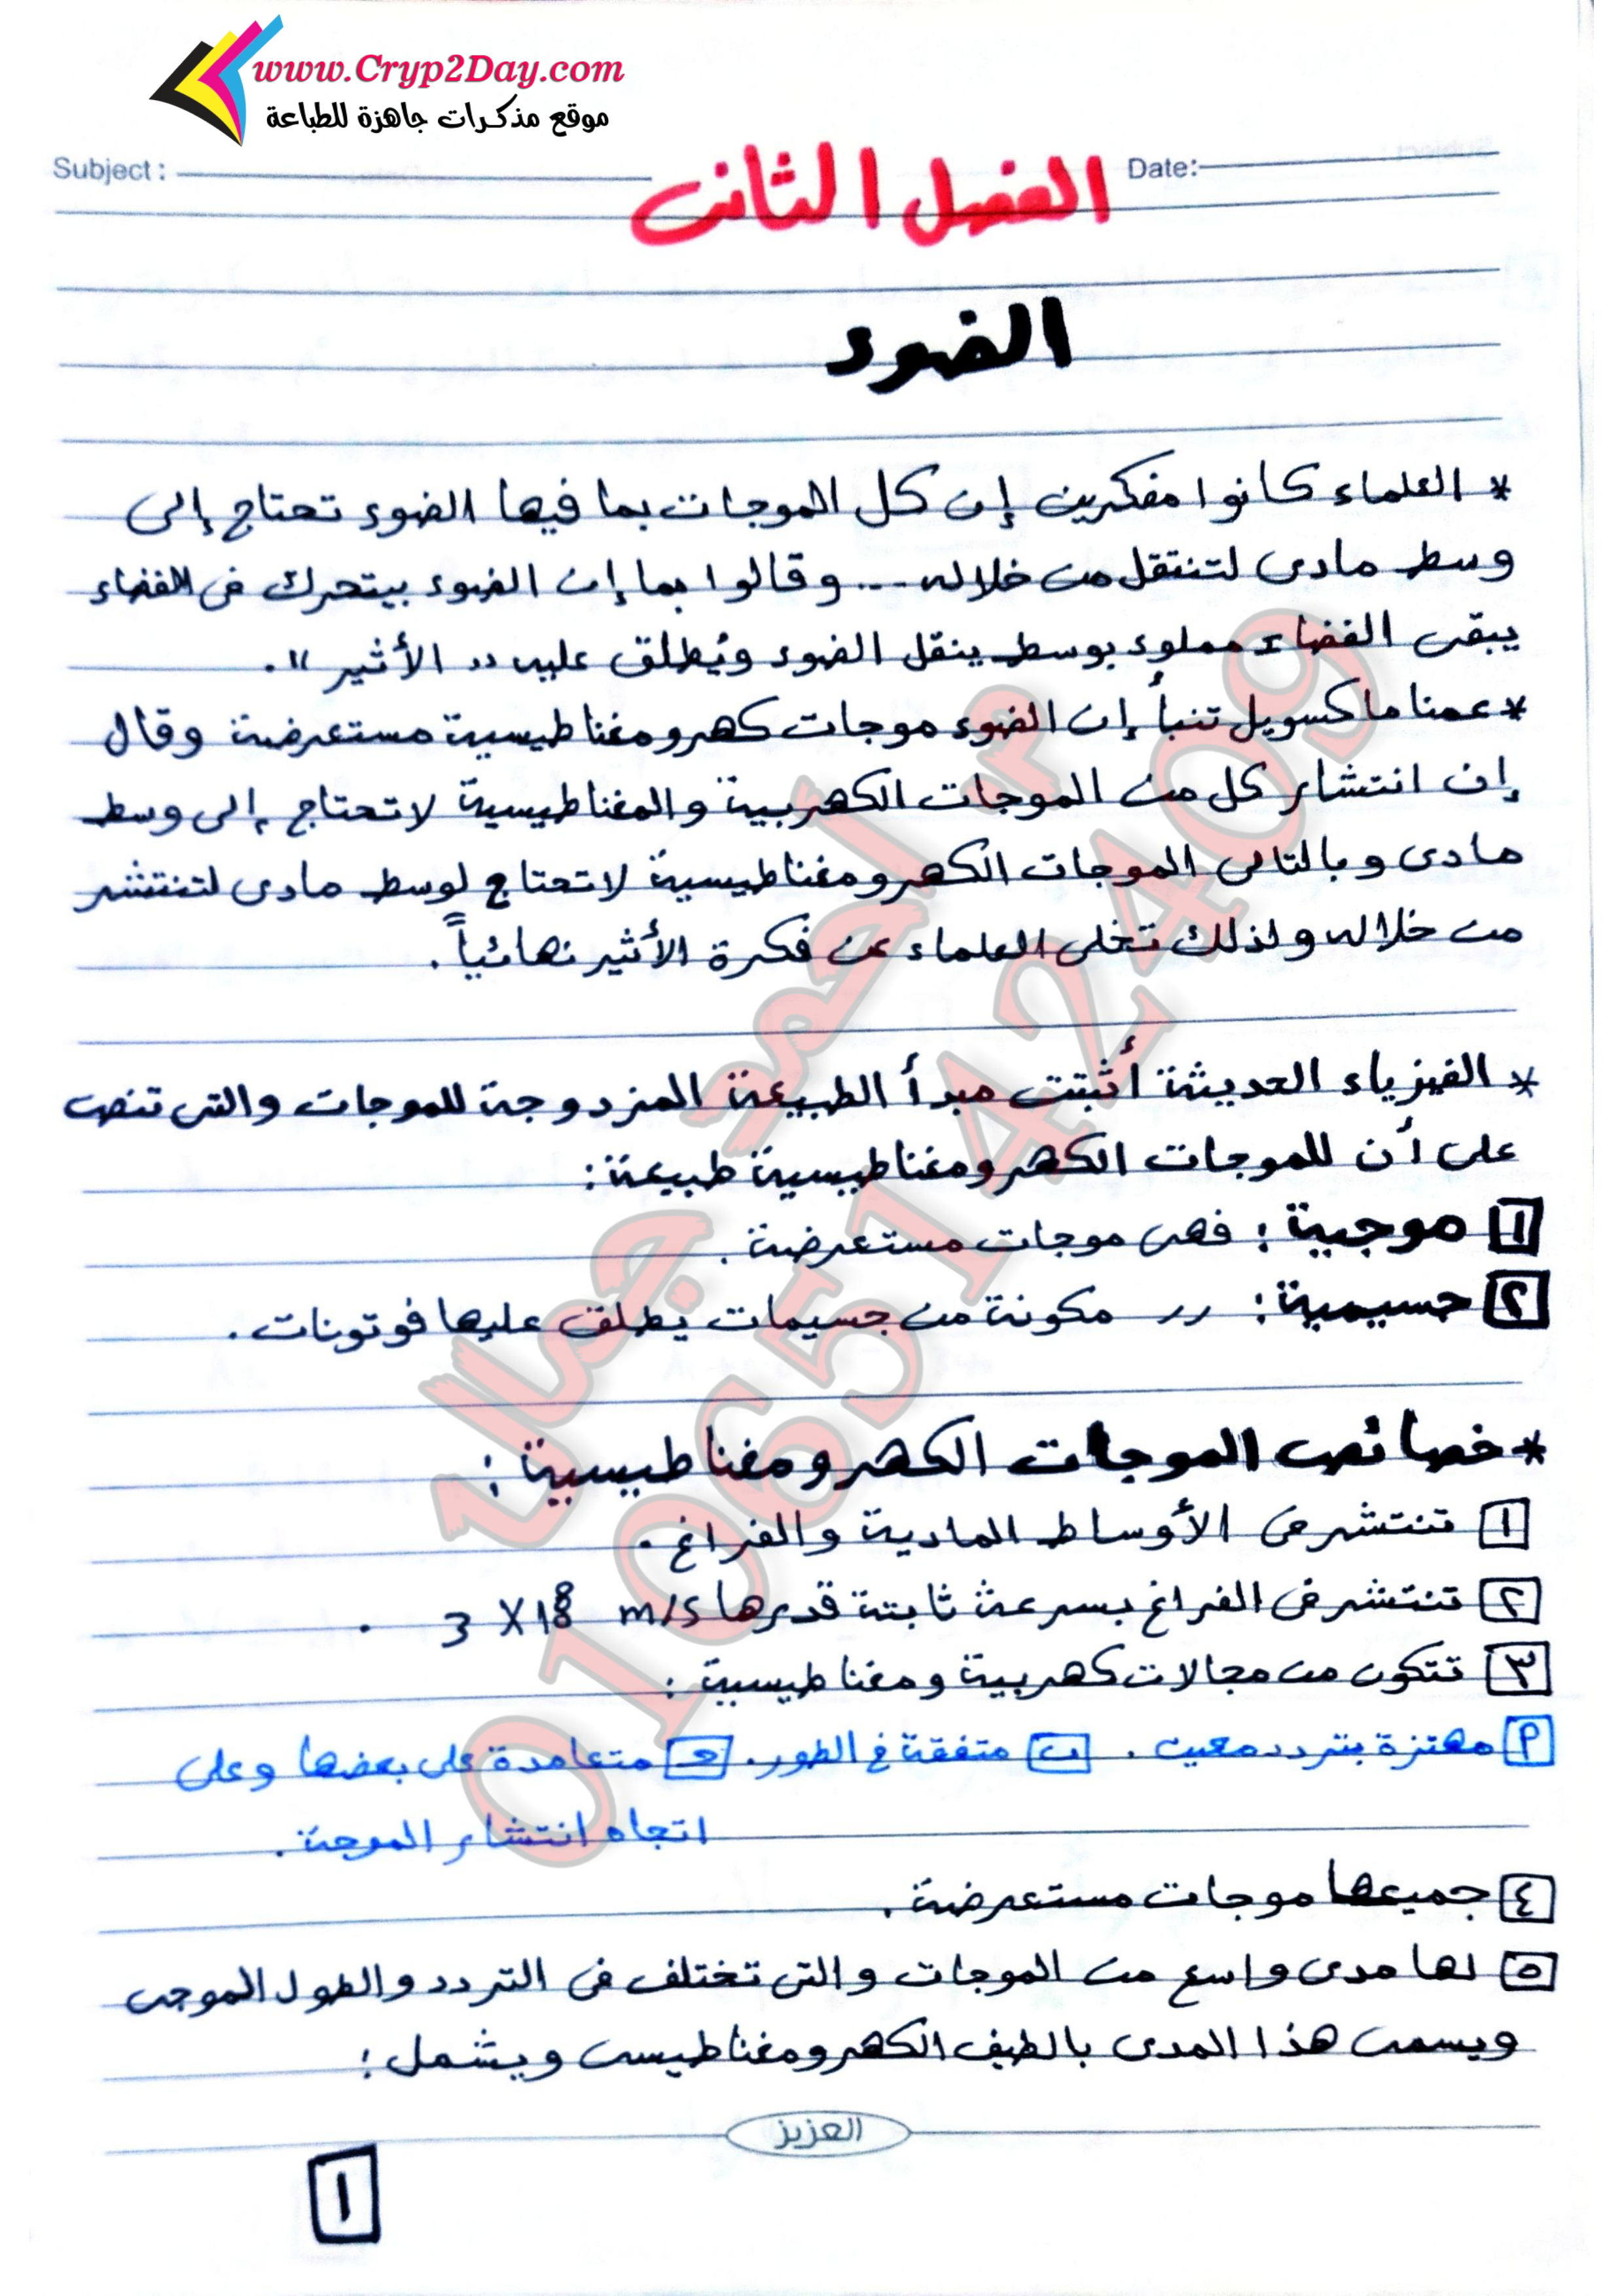 www.Cryp2Day.com
موقع مذكرات جاهزة للطباعة
Subject :
Date:
الفصل الثانى
الضوء
* العلماء كانوا مفكرين إن كل الموجات بما فيها الضوء تحتاج إلى
وسط مادى لتنتقل من خلاله --- وقالوا بما إن الضوء بيتحرك فى الفضاء
يبقى الفضاء مملوء بوسط ينقل الضوء ويُطلق عليه " الأثير ".
* عمنا ماكسويل تنبأ إن الضوء موجات كهرومغناطيسية مستعرضة وقال
إن انتشار كل من الموجات الكهربية والمغناطيسية لا تحتاج إلى وسط
مادى وبالتالى الموجات الكهرومغناطيسية لا تحتاج لوسط مادى لتنتشر
من خلاله ولذلك تخلى العلماء عن فكرة الأثير نهائياً .
* الفيزياء الحديثة أثبتت مبدأ الطبيعة المزدوجة للموجات والتى تنص
على أن للموجات الكهرومغناطيسية طبيعة :
١ موجية : فهى موجات مستعرضة .
٢ جسيمية : 〃 مكونة من جسيمات يطلق عليها فوتونات .
* خصائص الموجات الكهرومغناطيسية :
١ تنتشر فى الأوساط المادية والفراغ .
٢ تنتشر فى الفراغ بسرعة ثابتة قدرها 3 X 10⁸ m/s .
٣ تتكون من مجالات كهربية ومغناطيسية :
٩ مهتزة بتردد معين . ب متفقة فى الطور . جـ متعامدة على بعضها وعلى
اتجاه انتشار الموجة .
٤ جميعها موجات مستعرضة .
٥ لها مدى واسع من الموجات والتى تختلف فى التردد والطول الموجى
ويسمى هذا المدى بالطيف الكهرومغناطيسى ويشمل :
العزيز
١
م. احمد جمال
01065142409